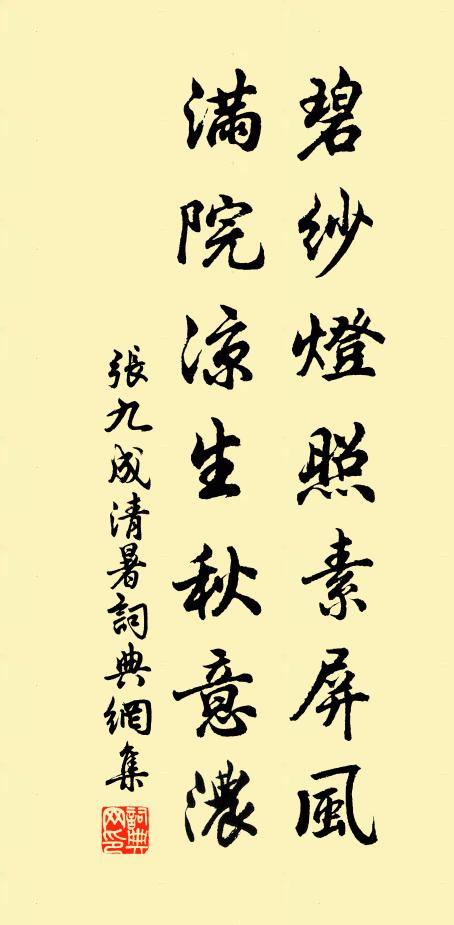 碧紗燈照素屏風
滿院涼生秋意濃
張九成清暑詞典網集
詞典網印